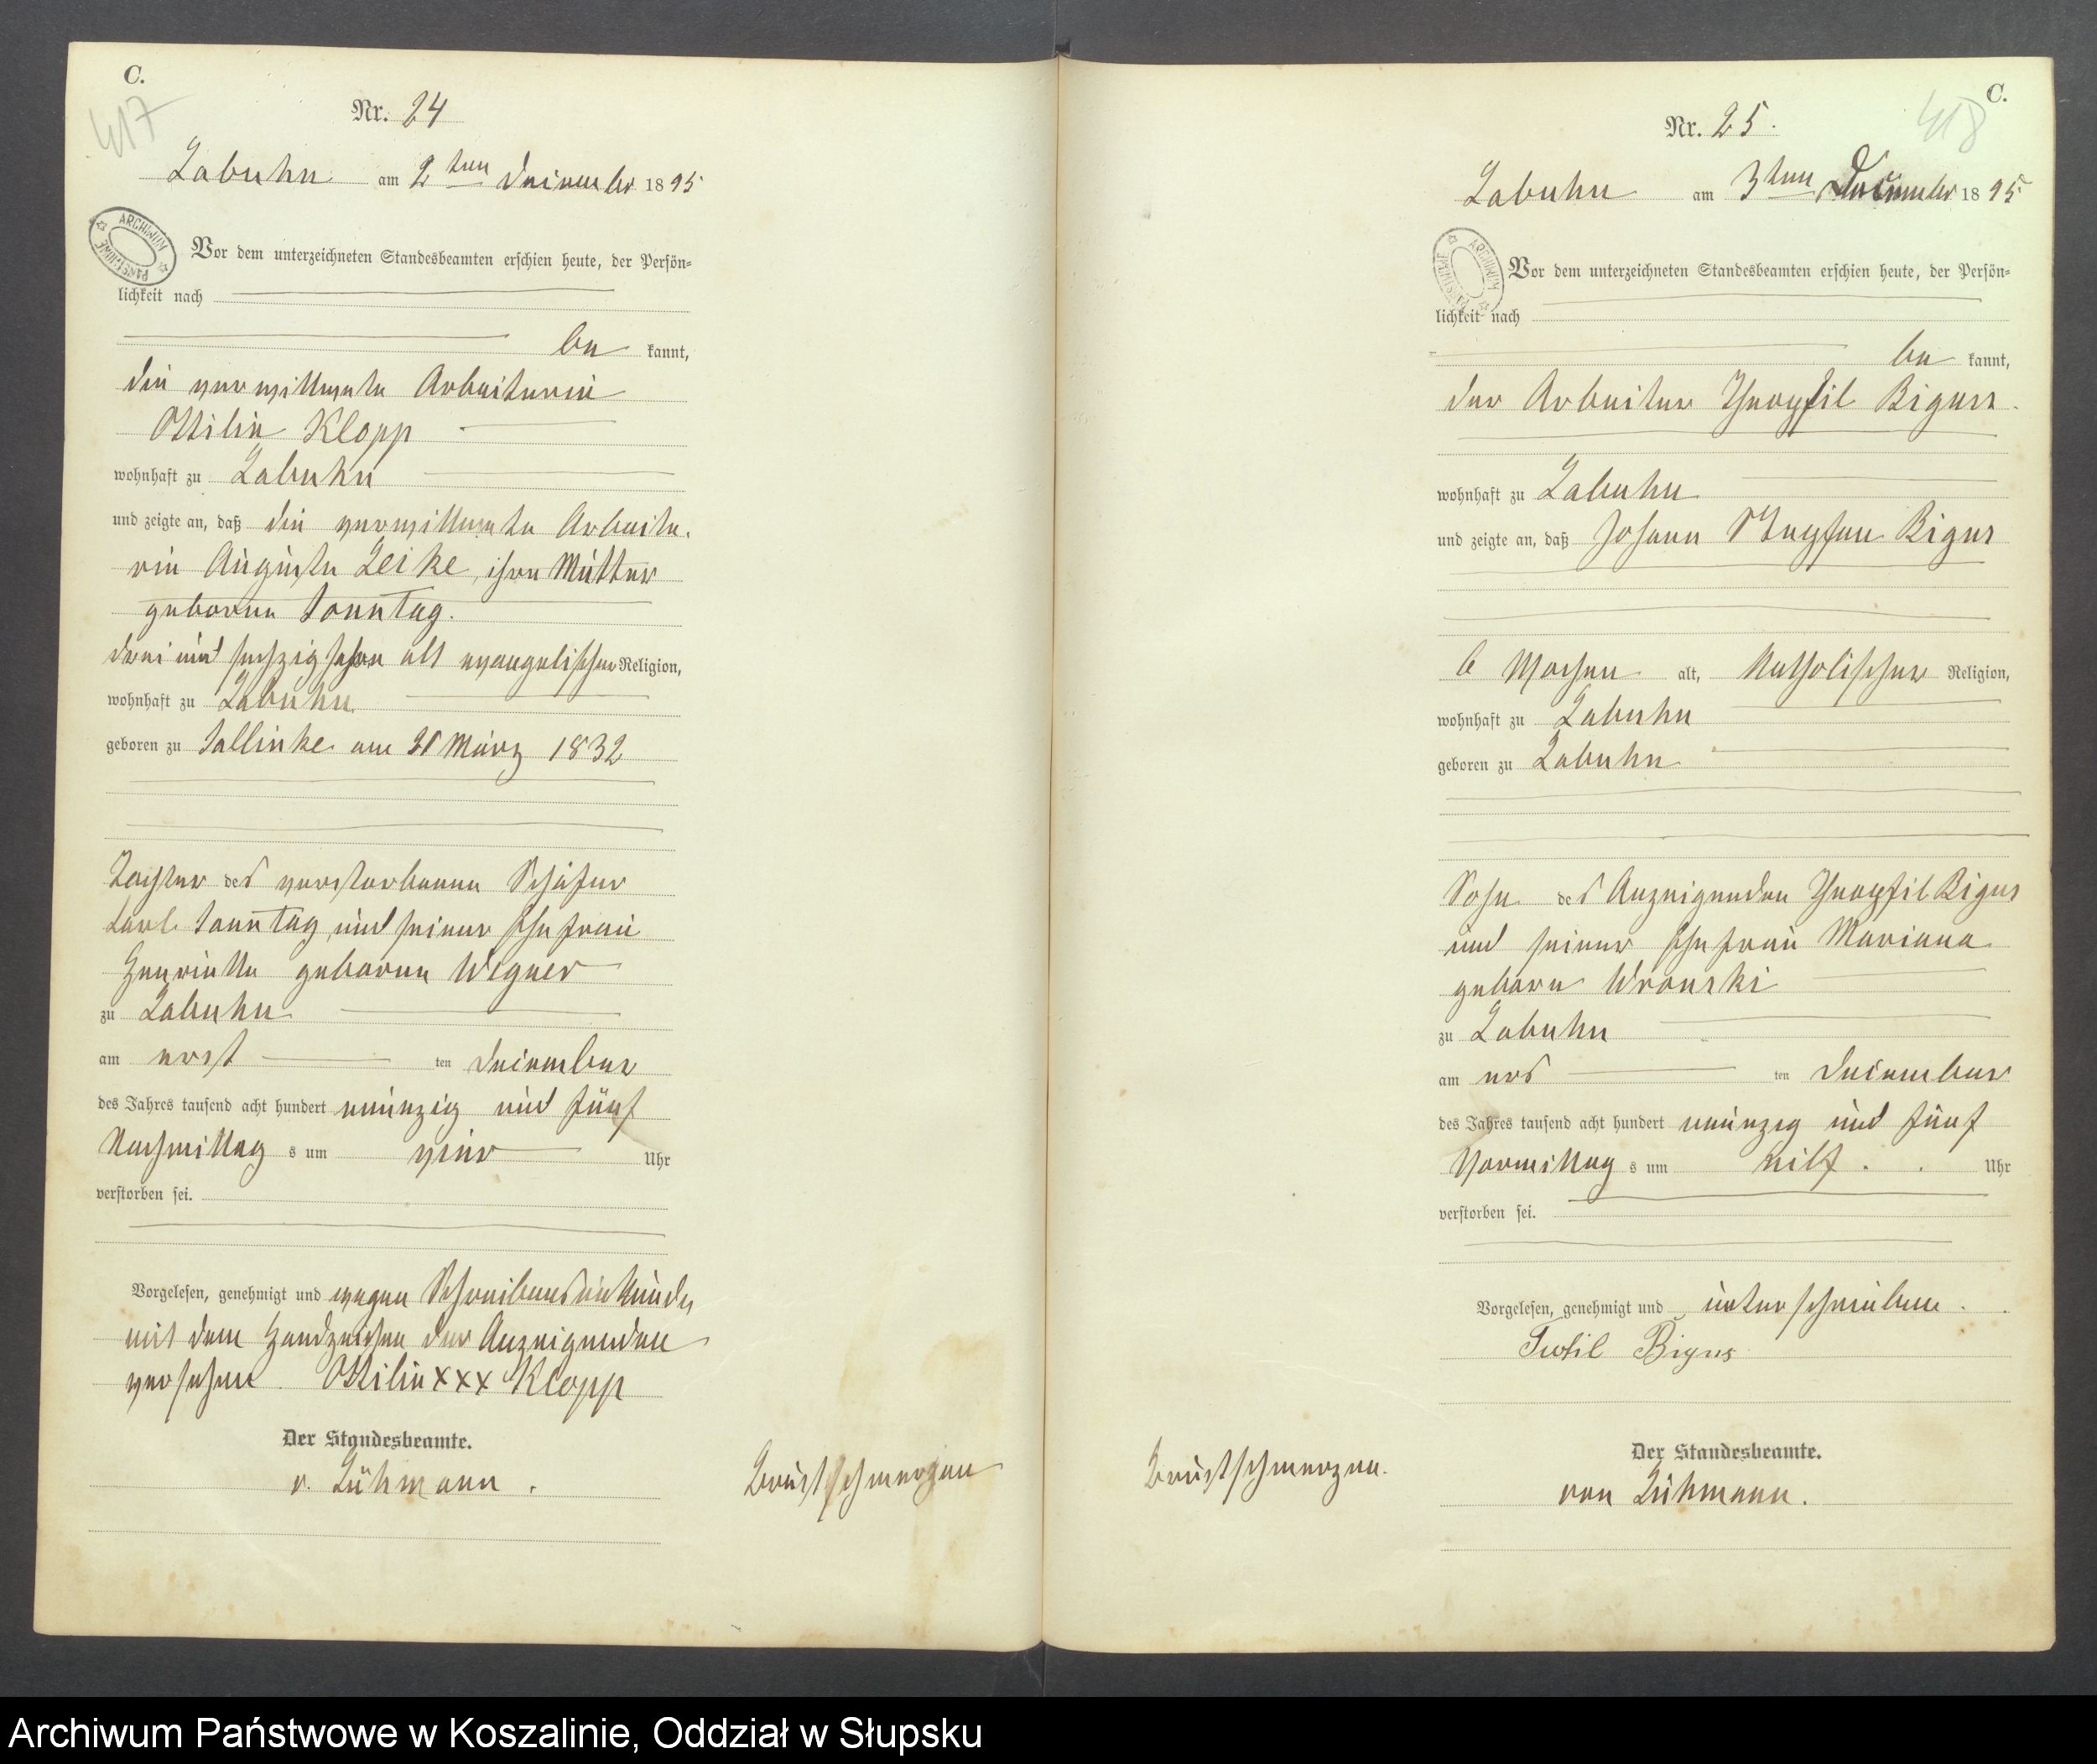 C.
417
Nr. 24
Labuhn am 2ten December 1895
ARCHIWUM PAŃSTWOWE
Vor dem unterzeichneten Standesbeamten erschien heute, der Persön-
lichkeit nach
be kannt,
die verwittwete Arbeiterin
Ottilie Klopp
wohnhaft zu Labuhn
und zeigte an, daß die verwittwete Arbeite-
rin Auguste Leike, ihre Mutter
geborene Sonntag.
drei und sechzig Jahre alt evangelischer Religion,
wohnhaft zu Labuhn
geboren zu Sallinke am März 1832
Tochter des verstorbenen Schäfer
Carl Sonntag und seiner Ehefrau
Henriette geborene Wegner
zu Labuhn
am erst ten December
des Jahres tausend acht hundert neunzig und fünf
Nachmittag s um vier Uhr
verstorben sei.
Vorgelesen, genehmigt und wegen Schreibensunkunde
mit dem Handzeichen der Anzeigenden
versehen. Ottilie xxx Klopp
Der Standesbeamte.
v. Lühmann.
Brustschmerzen
C.
418
Nr. 25.
Labuhn am 3ten December 1895
ARCHIWUM PAŃSTWOWE
Vor dem unterzeichneten Standesbeamten erschien heute, der Persön-
lichkeit nach
be kannt,
der Arbeiter Theophil Bigus.
wohnhaft zu Labuhn
und zeigte an, daß Johann Stephan Bigus
6 Wochen alt, Katholischer Religion,
wohnhaft zu Labuhn
geboren zu Labuhn
Sohn des Anzeigenden Theophil Bigus
und seiner Ehefrau Mariana
geborn Wronski
zu Labuhn
am ers ten December
des Jahres tausend acht hundert neunzig und fünf
Vormittag s um Uhr
verstorben sei.
Vorgelesen, genehmigt und unterschrieben.
Teofil Bigus
Der Standesbeamte.
von Lühmann.
Brustschmerzen.
Archiwum Państwowe w Koszalinie, Oddział w Słupsku